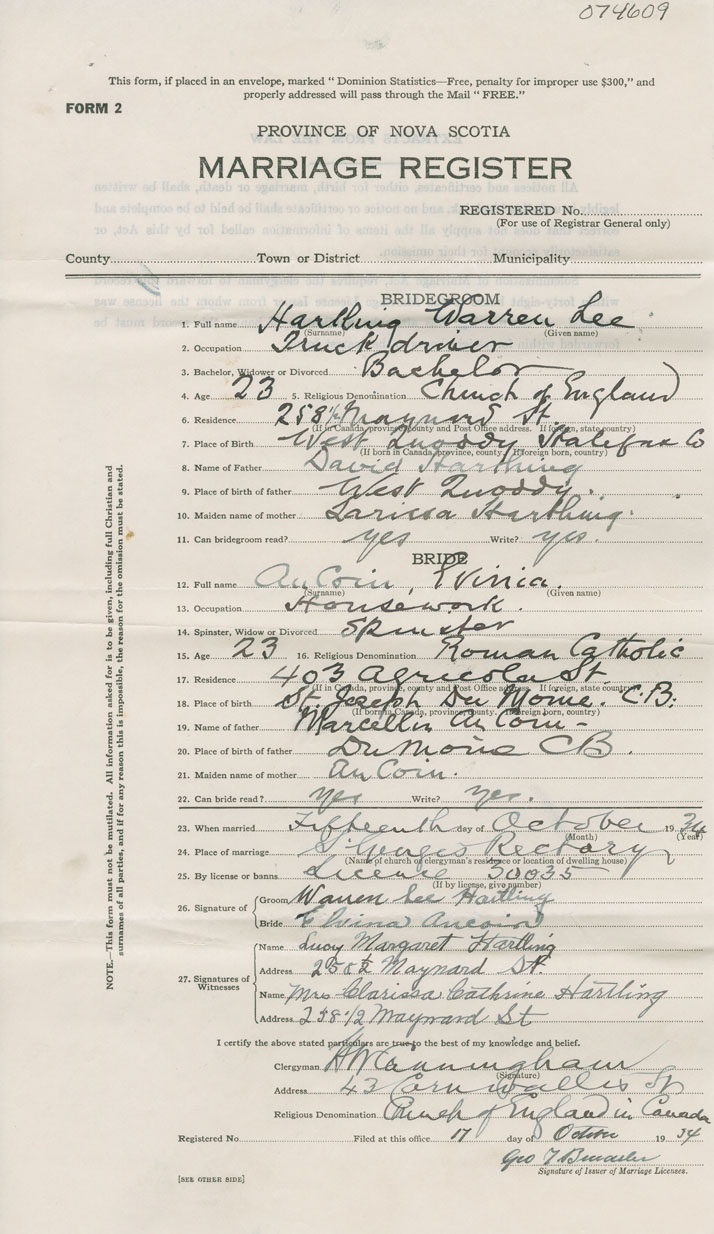 074609
This form, if placed in an envelope, marked “ Dominion Statistics—Free, penalty for improper use $300,” and
properly addressed will pass through the Mail “ FREE.”
FORM 2
PROVINCE OF NOVA SCOTIA
MARRIAGE REGISTER
REGISTERED No.
(For use of Registrar General only)
County Town or District Municipality
BRIDEGROOM
1. Full name Hartling Warren Lee
(Surname) (Given name)
2. Occupation Truck driver
3. Bachelor, Widower or Divorced Bachelor
4. Age 23 5. Religious Denomination Church of England
6. Residence 258½ Maynard St.
(If in Canada, province, county and Post Office address. If foreign, state country)
7. Place of Birth West Quoddy Halifax Co
(If born in Canada, province, county. If foreign born, country)
8. Name of Father David Hartling
9. Place of birth of father West Quoddy.
10. Maiden name of mother Larissa Hartling.
11. Can bridegroom read? yes Write? yes.
BRIDE
12. Full name AuCoin, Elvinia.
(Surname) (Given name)
13. Occupation Housework.
14. Spinster, Widow or Divorced Spinster
15. Age 23 16. Religious Denomination Roman Catholic
17. Residence 403 Agricola St.
(If in Canada, province, county and Post Office address. If foreign, state country)
18. Place of birth St. Joseph Du Moine. C.B.
(If born in Canada, province, county. If foreign born, country)
19. Name of father Marcellin AuCoin-
20. Place of birth of father Du Moine CB.
21. Maiden name of mother AuCoin.
22. Can bride read? yes Write? yes.
23. When married Fifteenth day of October 19 34
(Month) (Year)
24. Place of marriage St Georges Rectory
(Name of church or clergyman's residence or location of dwelling house)
25. By license or banns License 50035
(If by license, give number)
26. Signature of Groom Warren Lee Hartling
Bride Elvina Aucoin
27. Signatures of Witnesses Name Lucy Margaret Hartling
Address 258½ Maynard St.
Name Mrs Clarissa Cathrine Hartling
Address 258 1/2 Maynard St
I certify the above stated particulars are true to the best of my knowledge and belief.
Clergyman H W Cunningham
(Signature)
Address 43 Cornwallis St
Religious Denomination Church of England in Canada
Registered No Filed at this office 17 day of October 19 34
Geo T
Signature of Issuer of Marriage Licenses.
[SEE OTHER SIDE]
NOTE.—This form must not be mutilated. All information asked for is to be given, including full Christian and
surnames of all parties, and if for any reason this is impossible, the reason for the omission must be stated.